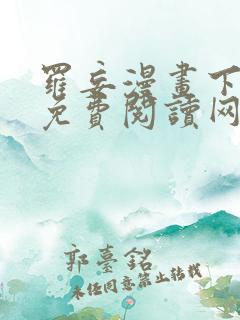 羅妄漫畫下
免費閱讀网
郭臺銘
未经同意禁止转载